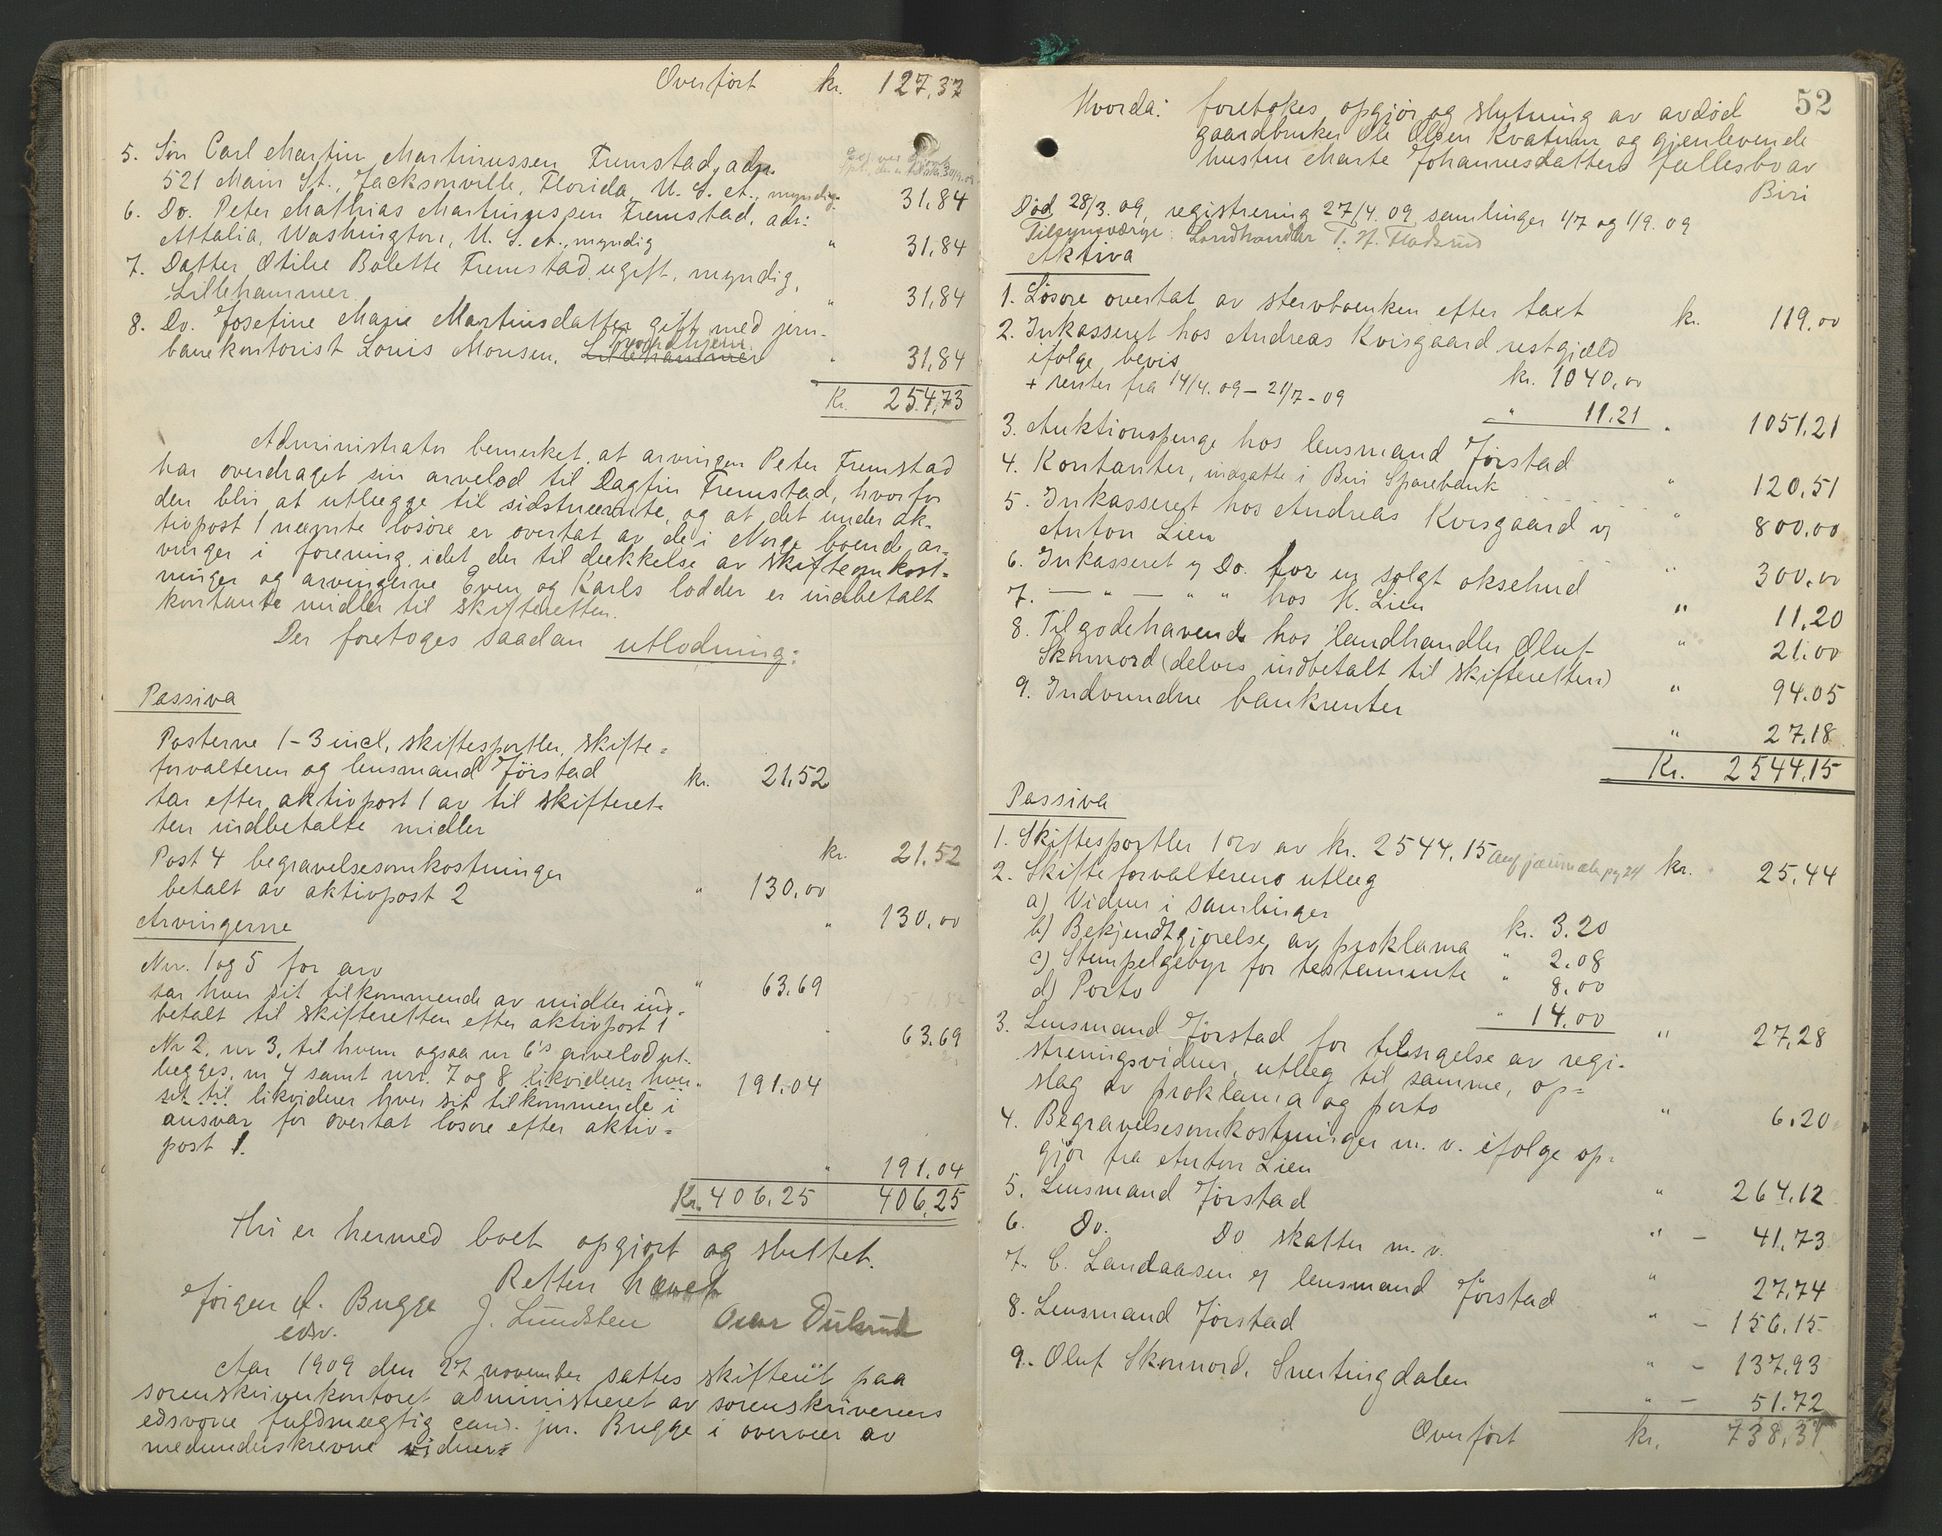 Overført kr. 127,37
5. Søn Carl Martin Martinussen Fremstad, adr.
521 Main St., Jacksonville, Florida, U. S. A., myndig 31,84
6. Do. Peter Mathias Martinussen Fremstad, adr:
Attalia, Washington, U. S. A., myndig " 31,84
7. Datter Otilie Bolette Fremstad, ugift, myndig,
Lillehammer " 31,84
8. Do. Josefine Marie Martinsdatter gift med jern-
banekontorist Louis Monsen, Trondhjem. Lillehammer " 31,84
Kr. 254,73
Administrator bemerket, at arvingen Peter Fremstad
har overdraget sin arvelod til Dagfin Fremstad, hvorfor
den blir at utlægge til sidstnævnte, og at det under ak-
tivpost 1 nævnte løsøre er overtat av de i Norge boende ar-
vinger i forening, idet der til dækkelse av skifteomkost-
ninger og arvingerne Even og Karls lodder er indbetalt
kontante midler til skifteretten.
Der foretoges saadan utlodning:
Passiva
Posterne 1-3 incl, skiftesportler, skifte-
forvalteren og lensmand Jørstad kr. 21,52
tar efter aktivpost 1 av til skifteret-
ten indbetalte midler kr. 21,52
Post 4 begravelsesomkostninger " 130,00
betalt av aktivpost 2 " 130,00
Arvingerne
Nr. 1 og 5 for arv " 63,69
tar hver sit tilkommende av midler ind-
betalt til skifteretten efter aktivpost 1 " 63,69
Nr 2, nr 3, til hvem ogsaa nr 6's arvelod ut-
lægges, nr 4 samt nr. 7 og 8 likviderer hver " 191.04
sit til likviderer hver sit tilkommende i
ansvar for overtat løsøre efter aktiv-
post 1. " 191.04
Kr. 406,25 406,25
Thi er hermed boet opgjort og sluttet.
Retten hævet
Jørgen A. Bugge J. Lundsten
edsv.
Aar 1909 den 27 november sattes skifteret paa
sorenskriverkontoret administreret av sorenskriverens
edsvorne fuldmægtig cand. jur. Bugge i overvær av
medunderskrevne vidner:
52
Hvorda: foretokes opgjør og slutning av avdød
gaardbruker Ole Olsen Kvatum og gjenlevende
hustru Marte Johannesdatters fællesbo av
Biri
Død 28/3. 09, registrering 27/4. 09 samlinger 1/7 og 1/9. 09
Tilsynsværge: Landhandler T. H. Fladsrud
Aktiva
1. Løsøre overtat av stervboenken efter taxt kr. 119.00
2. Inkasseret hos Andreas Kvisgaard restgjæld
ifølge bevis kr. 1040,00
+ renter fra 14/4. 09 - 21/7 - 09 " 11.21 " 1051,21
3. Auktionspenge hos lensmand Jørstad " 120,51
4. Kontanter, indsatte i Biri Sparebank " 800,00
5. Inkasseret hos Andreas Kvisgaard v/
Anton Lien " 300,00
6. Inkasseret v/ Do. for en solgt oksehud " 11,20
7. — " — " " hos H. Lien " 21.00
8. Tilgodehavende hos landhandler Oluf
Skonnord (delvis indbetalt til skifteretten) " 94.05
9. Indvundne bankrenter " 27,18
Kr. 2544,15
Passiva
1. Skiftesportler 1 o/o av kr. 2544,15 kr. 25,44
2. Skifteforvalterens utlæg
a) Vidner i samlinger kr. 3.20
b) Bekjendtgjørelse av proklama " 2.08
c) Stempelgebyr for testamente " 8.00
d) Porto " 14.00 " 27,28
3. Lensmand Jørstad for tilsigelse av regi-
streringsvidner, utlæg til samme, op-
slag av proklama og porto " 6.20
4. Begravelsesomkostninger m. v. ifølge op-
gjør fra Anton Lien " 264,12
5. Lensmand Jørstad " - 41,73
6. Do. Do skatter m. v. " 27,74
7. C. Landaasen v/ lensmand Jørstad " - 156.15
8. Lensmand Jørstad " - 137,93
9. Oluf Skonnord, Snertingdalen " - 51.72
Overført kr. 738,31